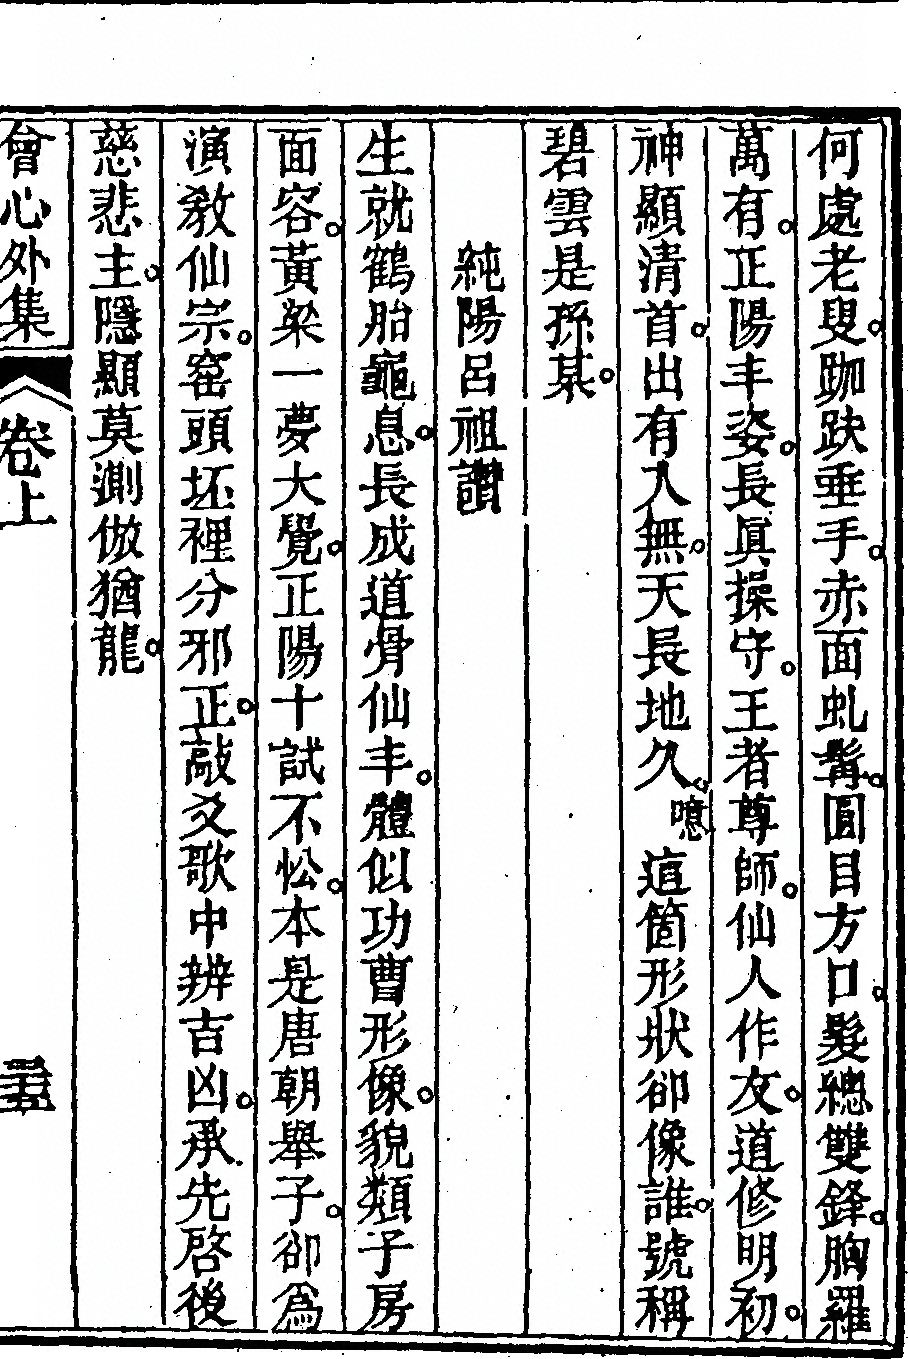 何處老叟。跏趺垂手。赤面虬髯。圓目方口。髮總雙鋒。胸羅
萬有。正陽丰姿。長眞操守。王者尊師。仙人作友。道修明初。
神顯清首。出有入無。天長地久。噫這箇形狀卻像誰。號稱
碧雲是孫某。
純陽呂祖讚
生就鶴胎龜息。長成道骨仙丰。體似功曹形像。貌類子房
面容。黃粱一夢大覺。正陽十試不忪。本是唐朝舉子。卻爲
演敎仙宗。窑頭坯裡分邪正。敲爻歌中辨吉凶。承先啓後
慈悲主。隱顯莫測倣猶龍。
會心外集
卷上
三五